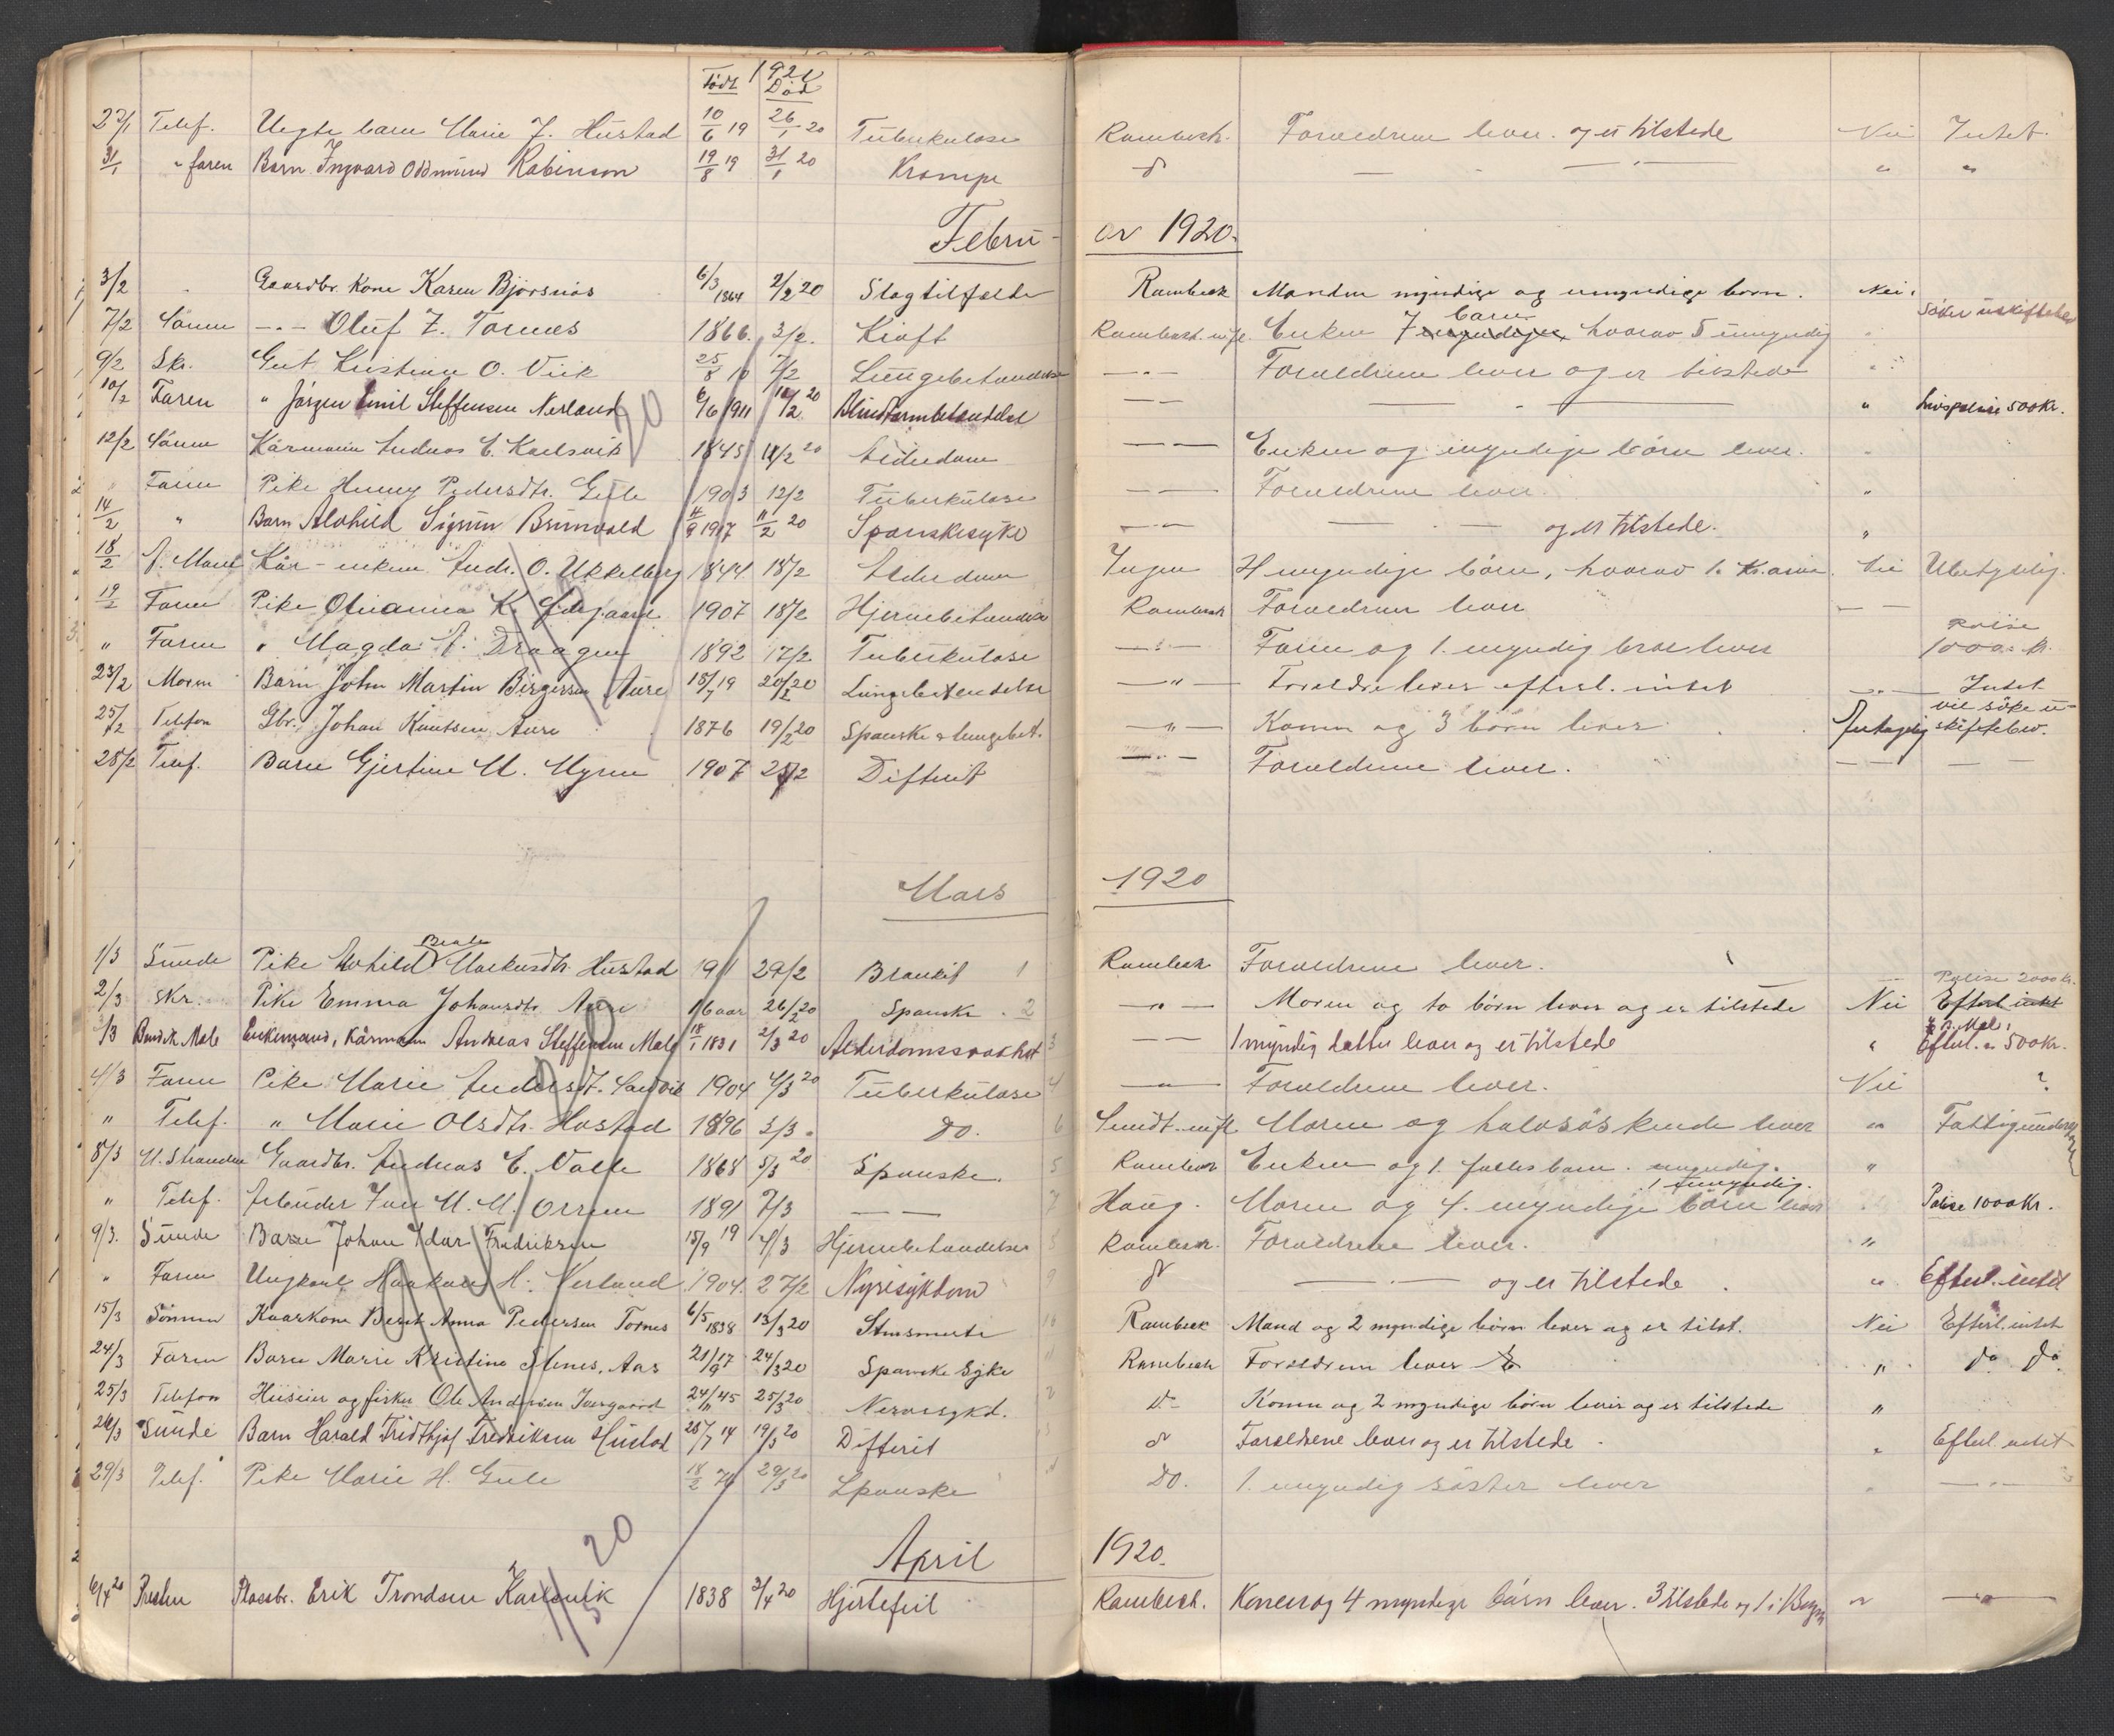 1920
Født Død
27/1 Telef. Uegte barn Marie J. Hustad 10/6 19 26/1 20 Tuberkulose Rambech. Forældrene lever. og er tilstede Nei Intet.
31/1 " faren Barn Ingvard Oddmund Robinson 19/8 19 31/1 20 Krampe do — " — " "
Febru- ar 1920.
3/2 " Gaardbr. Kone Karen Bjørsnøs 6/3 1864 2/2 20 Slagtilfælde Rambech Manden myndige og umyndige børn. Nei.
7/2 Sønnen — " — Oluf Z. Tornes 1866. 3/2. Kræft Rambech. Enken 7 børn hvorav 5 umyndig " Søker uskiftebev
9/2 Skr. Gut Kristian O. Viik 25/8 10 7/2 Lungebetændelse — " — Forældrene lever og er tilstede "
10/2 Faren " Jørgen Emil Steffensen Nerland 6/6 1911 10/2 20 Blindtarmbetændelse — — — " — " Livspolise 500 Kr.
12/2 Sønnen Kårmann Andreas E. Karlsvik 1845 11/2 20 Alderdom — — Enken og myndige børn lever. "
" Faren Pike Henny Pedersdtr. Gule 1903 12/2 Tuberkulose — — Forældrene lever. "
14/2 " Barn Alvhild Sigrun Brunvold 11/9 1917 11/2 20 Spanskesyke — " — — " — og er tilstede. "
18/2 Kår-enken Andr. O. Ukkelberg 1844 18/2 Alderdom Ingen 4 myndige børn, hvorav 1. Nei Ubetydelig.
19/2 Faren Pike Olianna K. 1907 18/2 Hjernebetændelse Rambech Forældrene lever — —
" Faren " Magda A. Draagen 1892 17/2 Tuberkulose — " — Faren og 1. myndig bror lever Polise 1000. kr.
23/2 Moren Barn John Martin Birgersen Aure 15/7 19 20/2 20 Lungebetendelse — " — Foreldre lever efterl. intet — " — Intet
25/2 Telefon Gbr. Johan Knutsen Aure 1876 19/2 20 Spanske & lungebet. — " — Konen og 3 børn lever. vil søke u-skiftebev.
28/2 Telef. Barn Gjertine M. Myren 1907 Difterit — " — Forældrene lever. — — — —
Mars 1920
1/3 Sunde Pike Alvhild Beate Markusdtr. Hustad 1911 29/2 Bronkit 1 Rambech Forældrene lever.
2/3 Skr. Pike Emma Johansdtr. Aure 16 aar 26/2 20 Spanske. 2 — " — Moren og to børn lever og er tilstede Nei Polise 2000 kr. Efterl. intet
/3 Bendik Male Enkemand, Kårmann Andreas Steffensen Male 18/1 1831 2/3 20 Alderdomssvakhet 3 — — 1 myndig datter lever og er tilstede " Efterl. ca 500 Kr.
4/3 Faren Pike Marie Andersdt. Sandvik 1904 4/3 20 Tuberkulose 4 — " — Forældrene lever. Nei ?
" Telef. " Marie Olsdtr. Hostad 1896 3/3 " Do. 6 Sundt. Moren og halvsøskende lever " Fattigunderst
8/3 M. Stranden Gaardbr. Andreas E. Valle 1868 5/3 20 Spanske. 5 Rambech Enken og 1. fælles barn. umyndig. "
" Telef. Arbeider Jon M. M. Orren 1891 7/3 — — 7 Haug. Moren og 4. myndige 1 umyndig. børn lever " Polise 1000 Kr.
9/3. Sunde Barn Johan Idar Fredriksen 15/9 19 4/3 Hjernebetændelse 8 Rambech. Forældrene lever. "
" Faren Ungkarl Haakon H. Nerland 1904. 27/2 Nyresykdom 9 do — " — og er tilstede. " Efterl. intet
15/3 Sønnen Kaarkone Berit Anna Pedersen Tornes 6/5 1838 13/3 20 10 Rambech Mand og 2 myndige børn lever og er tilst. Nei Efterl. intet
24/3 Faren Barn Marie Kristine Stenes, Aas 21/9 17 24/3 20 Spanske Syke Rambech Forældrene lever " do do.
25/3 Telefon Huseier og fisker Ole Andersen Iversgaard 24/11 45 25/3 20 Nervesykd. Do Konen og 2 myndige børn lever og er tilstede "
26/3 Sunde Barn Harald Fridthjof Fredriksen Hustad 28/7 14 19/3 20 Difterit do Foreldrene lever og er tilstede. " Efterl. intet
29/3 Telef. Pike Marie H. Gule 18/2 70 29/3 20 Spanske Do. 1. myndig søster lever " — " —
20
April 1920.
6/4 20 Presten Plassbr. Erik Trondsen Karlsvik 1838 3/4 20 Hjertefeil Rambech. Konen og 4 myndige børn lever. 3 tilstede og 1 i " — " —